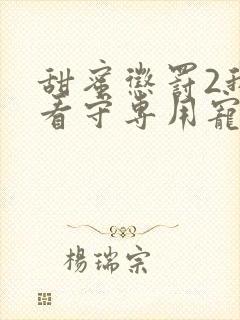 甜蜜懲罰2我
看守專用寵
楊瑞宗